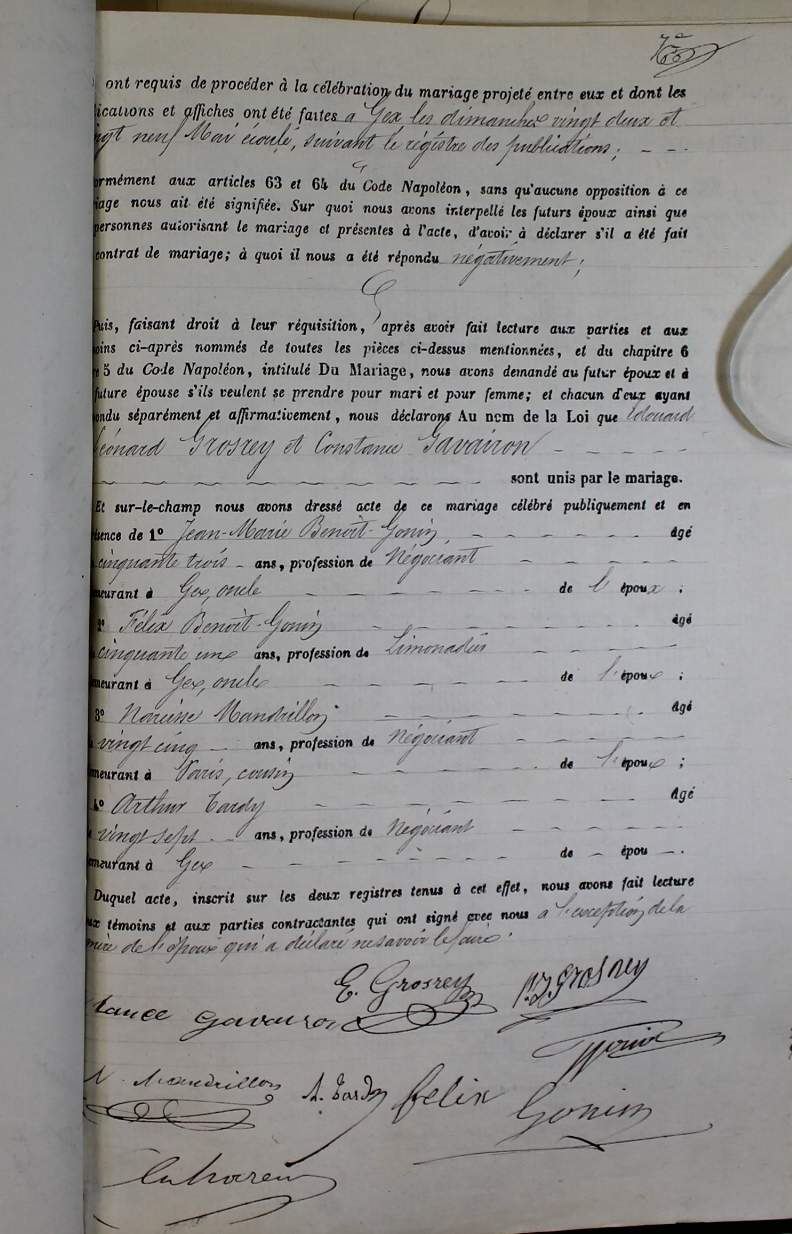 ont requis de procéder à la célébration du mariage projeté entre eux et dont les
lications et affiches ont été faites a Gex les dimanches vingt deux et
ngt neuf Mai écoulé, suivant le régistre des publications;
ormément aux articles 63 et 64 du Code Napoléon, sans qu'aucune opposition à ce
iage nous ait été signifiée. Sur quoi nous avons interpellé les futurs époux ainsi que
personnes autorisant le mariage et présentes à l'acte, d'avoir à déclarer s'il a été fait
contrat de mariage; à quoi il nous a été répondu négativement;
Puis, faisant droit à leur réquisition, après avoir fait lecture aux parties et aux
oins ci-après nommés de toutes les pièces ci-dessus mentionnées, et du chapitre 6
e 5 du Code Napoléon, intitulé Du Mariage, nous avons demandé au futur époux et à
future épouse s'ils veulent se prendre pour mari et pour femme; et chacun d'eux ayant
ondu séparément et affirmativement, nous déclarons Au nom de la Loi que Edouard
Léonard Grosrey et Constance Gavairon
sont unis par le mariage.
Et sur-le-champ nous avons dressé acte de ce mariage célébré publiquement et en
ésence de 1º Jean-Marie Benoît-Gonin, âgé
cinquante trois ans, profession de Négociant
meurant à Gex, oncle de l'époux;
2º Félix Benoit-Gonin âgé
cinquante un ans, profession de Limonadier
meurant à Gex, oncle de l'époux;
3º Narcisse Mandrillon âgé
vingt cinq ans, profession de Négociant
meurant à Paris, cousin de l'époux;
4º Arthur Tardy âgé
vingt sept ans, profession de Négociant
emeurant à Gex de épou.
Duquel acte, inscrit sur les deux registres tenus à cet effet, nous avons fait lecture
ux témoins et aux parties contractantes qui ont signé avec nous à l'exception de la
mère de l'époux qui a déclaré ne savoir le faire.
E. Grosrey P. Z. Grosrey
tance Gavairon
N. Mandrillon A. Tardy felix Gonin